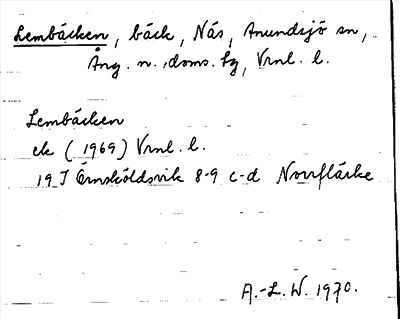 Lembäcken, bäck, Näs, Anundsjö sn,
Ång. n. doms. tg, Vrnl. l.
Lembäcken
ek (1969) Vrnl. l.
19 J Örnsköldsvik 8-9 c-d Norrflärke
A.-L. W. 1970.